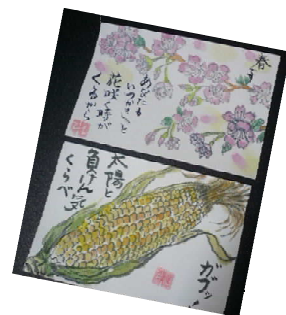 春です
あなたも
いつかきっと
花咲く時が
くるから
太陽と
負けん気
くらべ
ガブッ!